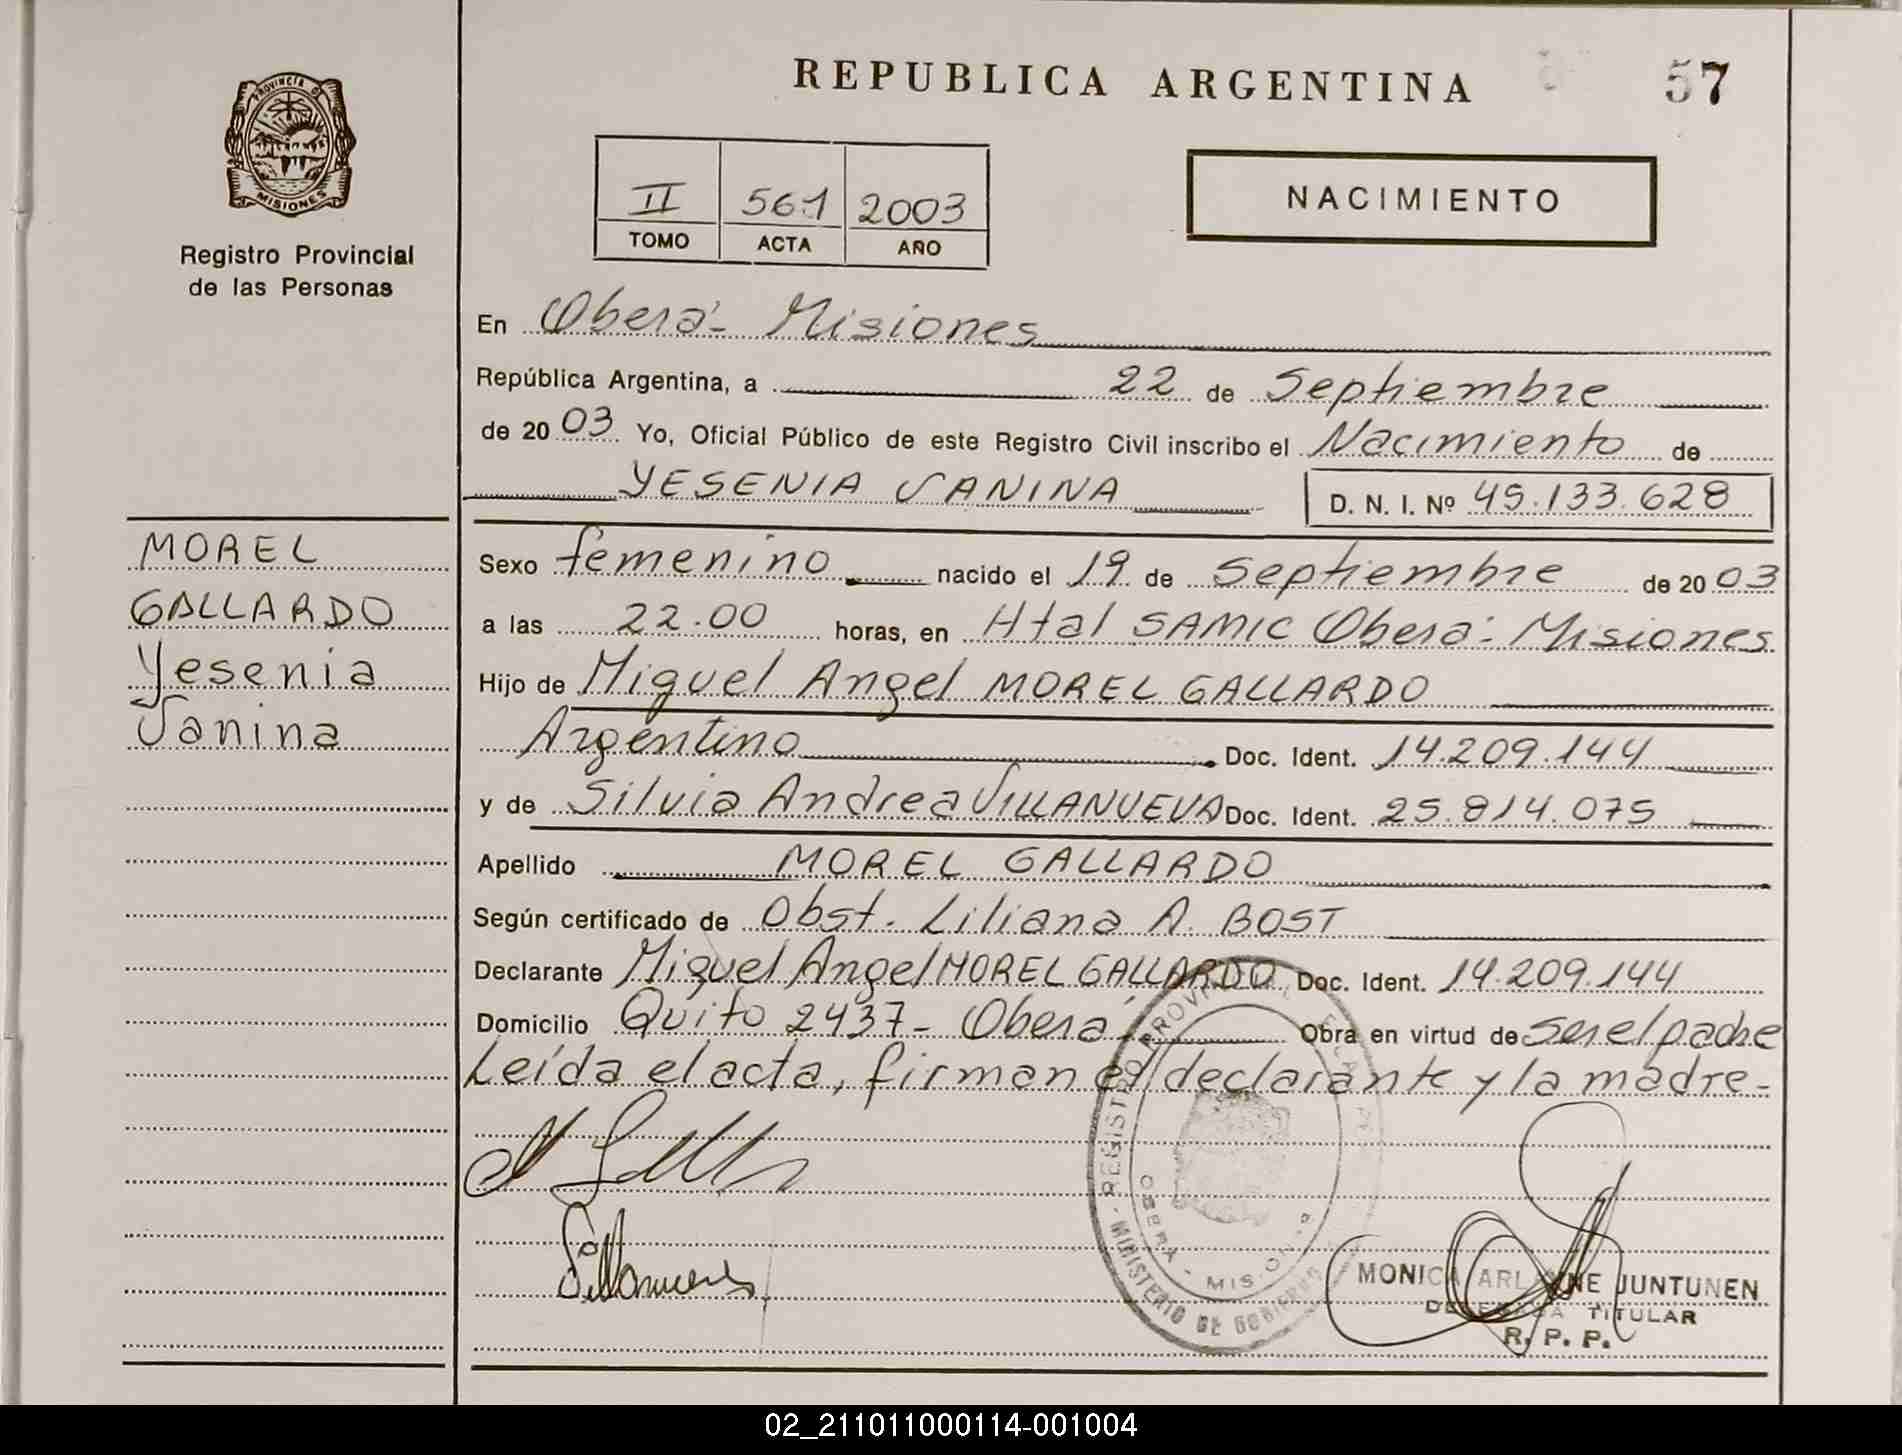 REPUBLICA ARGENTINA
57
PROVINCIA DE
MISIONES
Registro Provincial
de las Personas
II 561 2003
TOMO ACTA AÑO
NACIMIENTO
En Oberá - Misiones
República Argentina, a 22 de Septiembre
de 2003 Yo, Oficial Público de este Registro Civil inscribo el Nacimiento de
YESENIA VANINA
D. N. I. Nº 45.133.628
MOREL
GALLARDO
Yesenia
Vanina
Sexo femenino nacido el 19 de Septiembre de 2003
a las 22.00 horas, en Htal SAMIC Oberá - Misiones
Hijo de Miguel Angel MOREL GALLARDO
Argentino Doc. Ident. 14.209.144
y de Silvia Andrea VILLANUEVA Doc. Ident. 25.814.075
Apellido MOREL GALLARDO
Según certificado de Obst. Liliana A. BOST
Declarante Miguel Angel MOREL GALLARDO Doc. Ident. 14.209.144
Domicilio Quito 2437 - Oberá Obra en virtud de ser el padre
Leída el acta, firman el declarante y la madre -
REGISTRO PROVINCIAL
MINISTERIO DE GOBIERNO
OBERA - MISIONES
MONICA ARLENE JUNTUNEN
DELEGADA TITULAR
R. P. P.
02_211011000114-001004